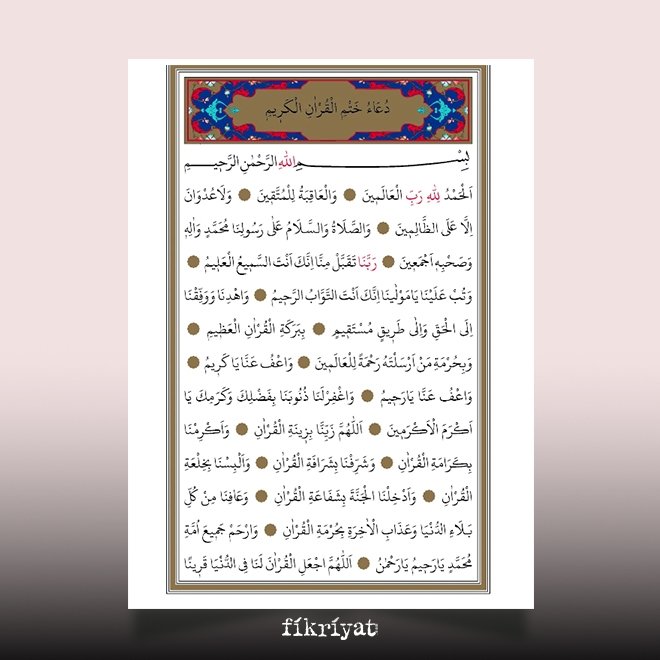 دُعَاءُ خَتْمِ الْقُرْاٰنِ الْكَر۪يمِ
بِسْمِ اللّٰهِ الرَّحْمٰنِ الرَّح۪يمِ
اَلْحَمْدُ لِلّٰهِ رَبِّ الْعَالَم۪ينَ ۞ وَالْعَاقِبَةُ لِلْمُتَّق۪ينَ ۞ وَلَاعُدْوَانَ
اِلَّا عَلَى الظَّالِم۪ينَ ۞ وَالصَّلَاةُ وَالسَّلَامُ عَلٰى رَسُولِنَا مُحَمَّدٍ وَاٰلِه۪
وَصَحْبِه۪ اَجْمَع۪ينَ ۞ رَبَّنَا تَقَبَّلْ مِنَّا اِنَّكَ اَنْتَ السَّم۪يعُ الْعَل۪يمُ ۞
وَتُبْ عَلَيْنَا يَامَوْلٰينَا اِنَّكَ اَنْتَ التَّوَّابُ الرَّح۪يمُ ۞ وَاهْدِنَا وَوَفِّقْنَا
اِلَى الْحَقِّ وَاِلٰى طَر۪يقٍ مُسْتَق۪يمٍ ۞ بِبَرَكَةِ الْقُرْاٰنِ الْعَظ۪يمِ ۞
وَبِحُرْمَةِ مَنْ اَرْسَلْتَهُ رَحْمَةً لِلْعَالَم۪ينَ ۞ وَاعْفُ عَنَّا يَا كَر۪يمُ ۞
وَاعْفُ عَنَّا يَارَح۪يمُ ۞ وَاغْفِرْلَنَا ذُنُوبَنَا بِفَضْلِكَ وَكَرَمِكَ يَا
اَكْرَمَ الْاَكْرَم۪ينَ ۞ اَللّٰهُمَّ زَيِّنَّا بِز۪ينَةِ الْقُرْاٰنِ ۞ وَاَكْرِمْنَا
بِكَرَامَةِ الْقُرْاٰنِ ۞ وَشَرِّفْنَا بِشَرَافَةِ الْقُرْاٰنِ ۞ وَاَلْبِسْنَا بِخِلْعَةِ
الْقُرْاٰنِ ۞ وَاَدْخِلْنَا الْجَنَّةَ بِشَفَاعَةِ الْقُرْاٰنِ ۞ وَعَافِنَا مِنْ كُلِّ
بَلَاءِ الدُّنْيَا وَعَذَابِ الْاٰخِرَةِ بِحُرْمَةِ الْقُرْاٰنِ ۞ وَارْحَمْ جَم۪يعَ اُمَّةِ
مُحَمَّدٍ يَارَح۪يمُ يَارَحْمٰنُ ۞ اَللّٰهُمَّ اجْعَلِ الْقُرْاٰنَ لَنَا فِى الدُّنْيَا قَر۪ينًا
fikriyat